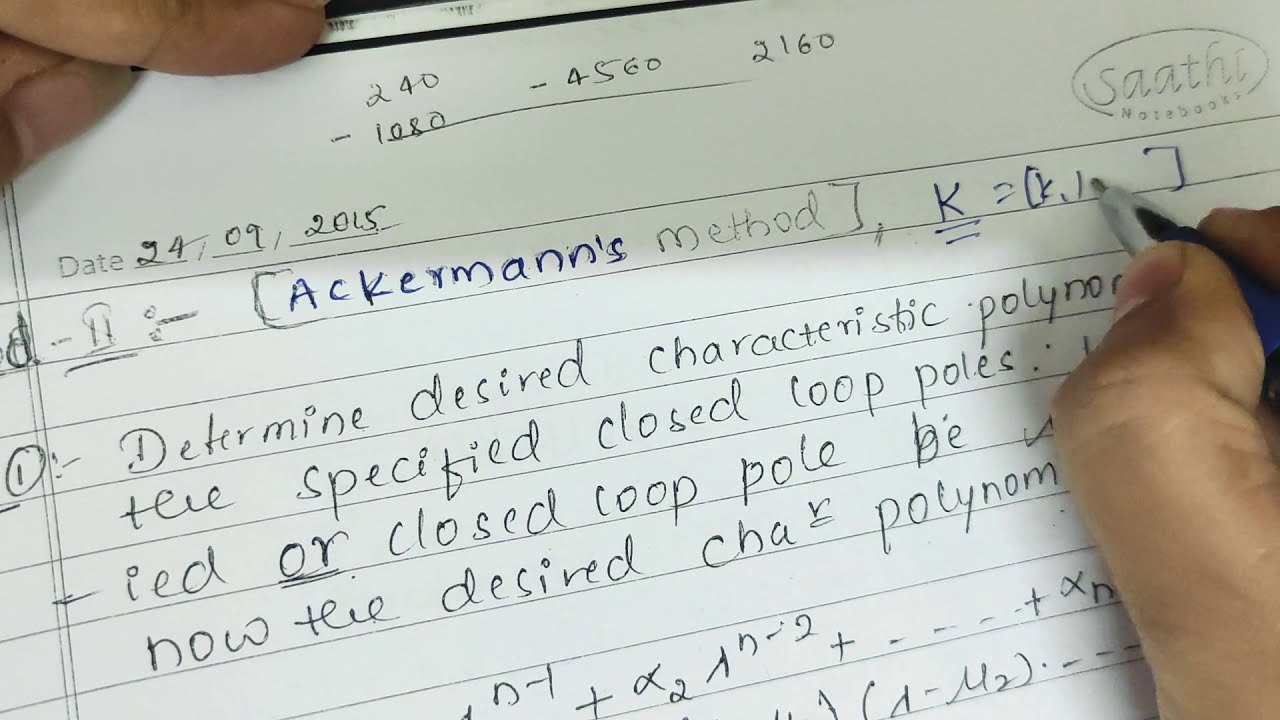 240 - 4560 2160
- 1080
Saathi
Notebooks
Date 24, 09, 2015
d - II :- [Ackermann's method], K = [k,
①:- Determine desired characteristic polynom
the specified closed loop poles:
- ied or closed loop pole be
now the desired cha r polynom
λn-1 + α2 λn-2 + - - - - + αn
(λ-μ2). - - -